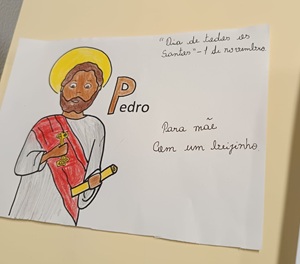 "Dia de todos os
Santos" - 1 de novembro
Pedro
Para mãe
Com um beijinho